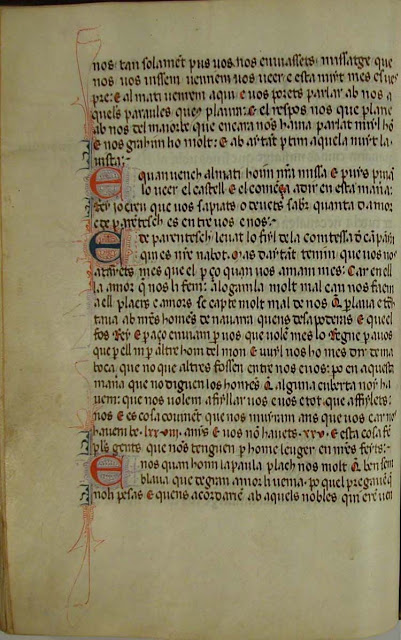 nos: tan solament pus uos nos enuiassets missatge que
nos uos uissem uenuem uos ueer e esta nuyt mes es ues
pre: E al mati uenrem aqui e uos porets parlar ab nos a
quels paraules queus plauran: E el respos nos que plane
ab nos del maior be que encara nos hauia parlat nuyl hom
E nos grahim ho molt: E ab aytant partim aquela nuyt la
uista:
E quan uench al mati hoim nostra missa E puys puiam
lo ueer el castell E el començan a dir en esta manera:
Rey io creu que uos sapiats o deuets saber quanta damor
e de parentesch es entre uos e nos:
E de parentesch: leuat lo fiyl de la comtessa de campanya
qui es nostre nabot. Mas daytant temim que uos nos
atanyets mes que el perço quan uos amam mes: Car en ell
la amor que nos li fem: a longamla molt mal can nos fariem
a ell plaers e amors se capte molt mal de nos Que parlaua e trac
taua ab nostres homens de nauarra quens desapoderas E que ell
fos Rey E per aço enuiam per uos que uolem mes lo Regne per a uos
que per ell ni per altre hom del mon E uuyl uos ho mes dir de ma
boca que no que altres fossen entre nos e uos: Pero en aquesta
manera que no diguen los homens Que alguna cuberta noy ha
uem: que nos uolem afiyllar uos e uos etot que affiylets
nos E es cosa couinent que nos muyram ans que uos car nos
hauem be .lxxviii. anys E uos no hauets .xxv. E esta cosa fem
per les gents que nons tenguen per home leuger en nostres feyts:
E nos quan hoim la paula plach nos molt Que ben sem
blaua que de gran amor li uenia. Pero quel pregauem que
noli pesas E quens acordariem ab aquels nobles quin eren uen